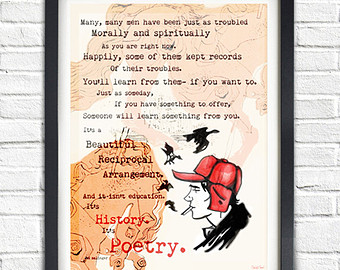 Many, many men have been just as troubled
Morally and spiritually
As you are right now.
Happily, some of them kept records
Of their troubles.
You'll learn from them- if you want to.
Just as someday,
If you have something to offer,
Someone will learn something from you.
It's a
Beautiful
Reciprocal
Arrangement.
And it isn't education.
It's
History.
It's
Poetry.